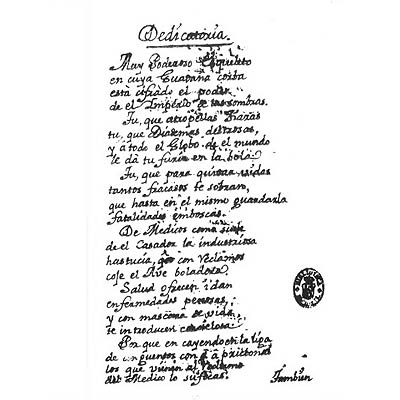 Dedicatoria.
Muy Poderoso Esqueleto
en cuya Guadaña corba
está cifrado el poder
de el Imperio de las sombras.
Tu, que atropellas Tiaras
tu, que Diademas destrosas,
y á todo el Globo de el mundo
le dá tu furia en la bola.
Tu, que para quitar vidas
tantos fracasos te sobran,
que hasta en el mismo guardarla
fatalidades emboscas.
De Medicos como
de el Casador la industriosa
hastucia, que con Reclamos
coje el Ave boladora
Salud ofrecen i dan
enfermedades penosas,
y con mascara de vida
se introducen
Por que en cayendo en la
de
los que al Reclamo
del Medico lo sufocas.
Tambien